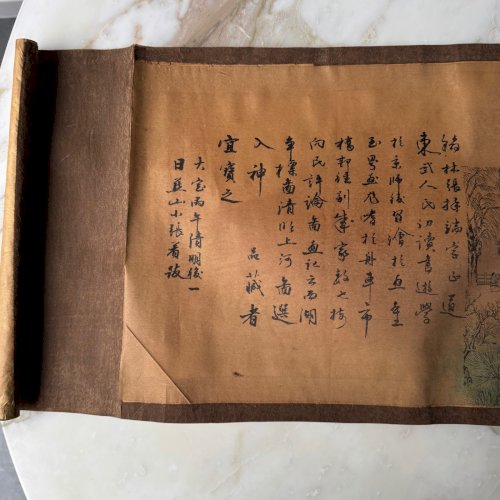 翰林張擇端字正道
東武人氏幼讀書遊學
於京師後習繪於
界畫尤嗜於舟車市
橋郭徑別成家數也按
向氏評論圖畫記云西湖
爭標圖清明上河圖選
入神 品藏者
宜寶之
大定丙午清明後一
日燕山小張著跋